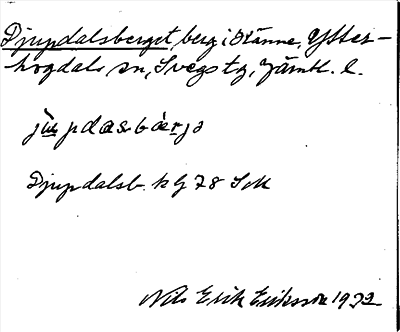 Djupdalsberget, berg i Stänne, Ytter-
hogdals sn, Svegs tg, Jämtl. l.
jupdasbærjə
Djupdalsb. k G 78 SM
Nils Erik Eriksson 1932